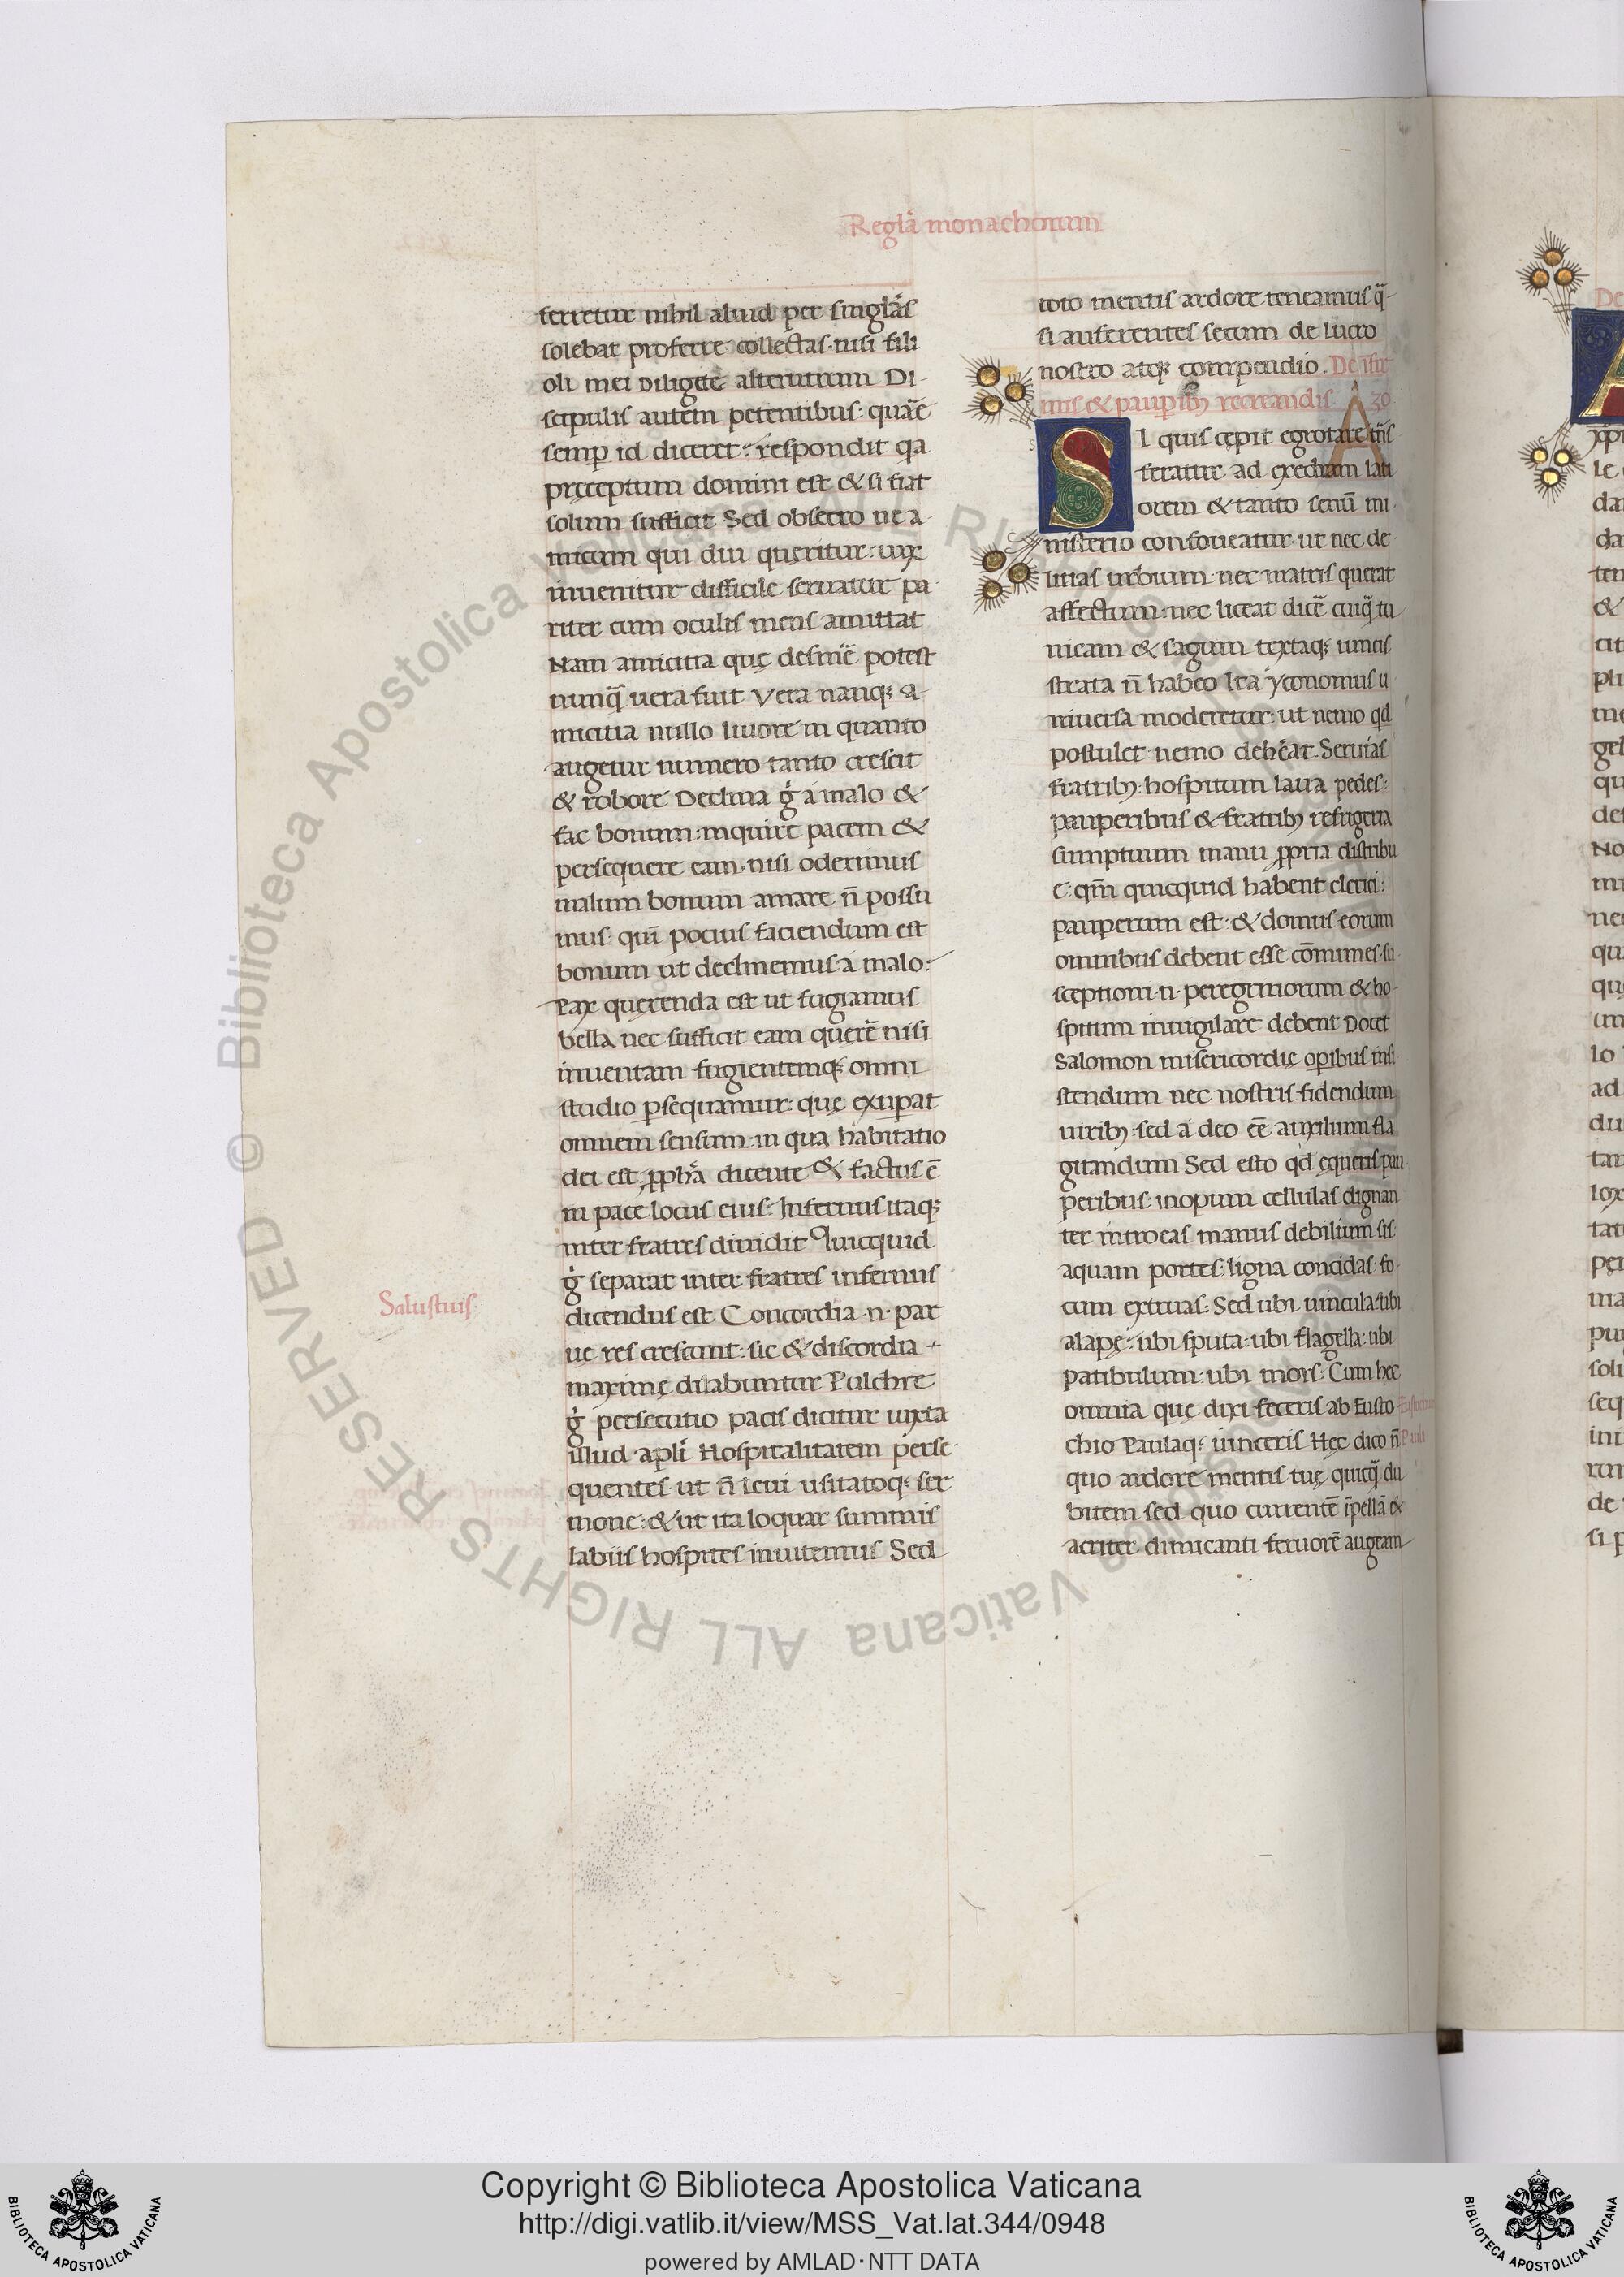 Reglã monachorum
ferretur nihil aliud per singlãs
solebat proferre collectas. nisi fili
oli mei Diligite alterutrum Di-
scipulis autem petentibus: quãe
semp id diceret: respondit qa
preceptum domini est & si fiat
solum sufficit Sed obsecro ne a-
micum qui diu queritur: uix
inuenitur difficile seruatur pa
riter cum oculis mens amittat
Nam amicitia que desinẽ potest
nunq̃ uera fuit Vera nanq; a-
micitia nullo liuore in quanto
augetur numero tanto crescit
& robore Declina g̓ a malo &
fac bonum: inquire pacem &
persequere eam. nisi oderimus
malum bonum amare. ñ possu
mus: quĩ pocius faciendum est
bonum ut declinemus a malo:
Pax querenda est ut fugiamus
bella nec sufficit eam querẽ nisi
inuentam fugientemq; omni
studio psequamur: que exupat
omnem sensum: in qua habitatio
dei est, pphã dicente & factus ẽ
in pace locus eius: Infernus itaq;
inter fratres diuidit Quicquid
g̓ separat inter fratres infernus
dicendus est Concordia .n. par
ue res crescunt: sic & discordia
maxime dilabuntur Pulchre
g̓ persecutio pacis dicitur iuxta
illud apli Hospitalitatem perse-
quentes. ut ñ leui usitatoq; ser
mone: & ut ita loquar summis
labiis hospites inuitemus Sed
Salustius:
toto mentis ardore teneamus q̃-
si auferentes secum de lucro
nostro atq; compendio. De ĩfir
mis & paupib; recreandis 30
SI quis cepit egrotare trñs
feratur ad exedram lati
orem & tanto senũ mi-
nisterio confoueatur. ut nec de
litias urbium. nec matris querat
affectum: nec liceat dicẽ cuiq̃ tu
nicam & sagum textaq; iuncis
strata ñ habeo Ita yconomus u
niuersa moderetur: ut nemo qd
postulet. nemo debeat. Seruias
fratrib;: hospitum laua pedes:
pauperibus & fratrib; refrigeria
sumptuum manu ppria distribu
e: qm̃ quicquid habent clerici:
pauperum est: & domus eorum
omnibus debent esse cõmunes: su
sceptioni .n. peregrinorum & ho-
spitum inuigilare debent Docet
Salomon misericordie opibus insi
stendum nec nostris fidendum
uirib; sed a deo eẽ auxilium fla
gitandum Sed esto qd equeris pau
peribus: inopum cellulas dignan
ter introeas manus debilium sis:
aquam portes: ligna concidas: fo-
cum extruas: Sed ubi uincula: ubi
alape: ubi sputa: ubi flagella: ubi
patibulum: ubi mors: Cum hec
omnia que dixi feceris ab Eusto
chio Paulaq; uinceris Hec dico ñ
quo ardore mentis tue quicq̃ du
bitem sed quo currentẽ ĩpellã &
acriter dimicanti feruorẽ augeam
Paula
Copyright © Biblioteca Apostolica Vaticana
http://digi.vatlib.it/view/MSS_Vat.lat.344/0948
powered by AMLAD·NTT DATA
BIBLIOTECA APOSTOLICA VATICANA
BIBLIOTECA APOSTOLICA VATICANA
© Biblioteca Apostolica Vaticana ALL RIGHTS RESERVED